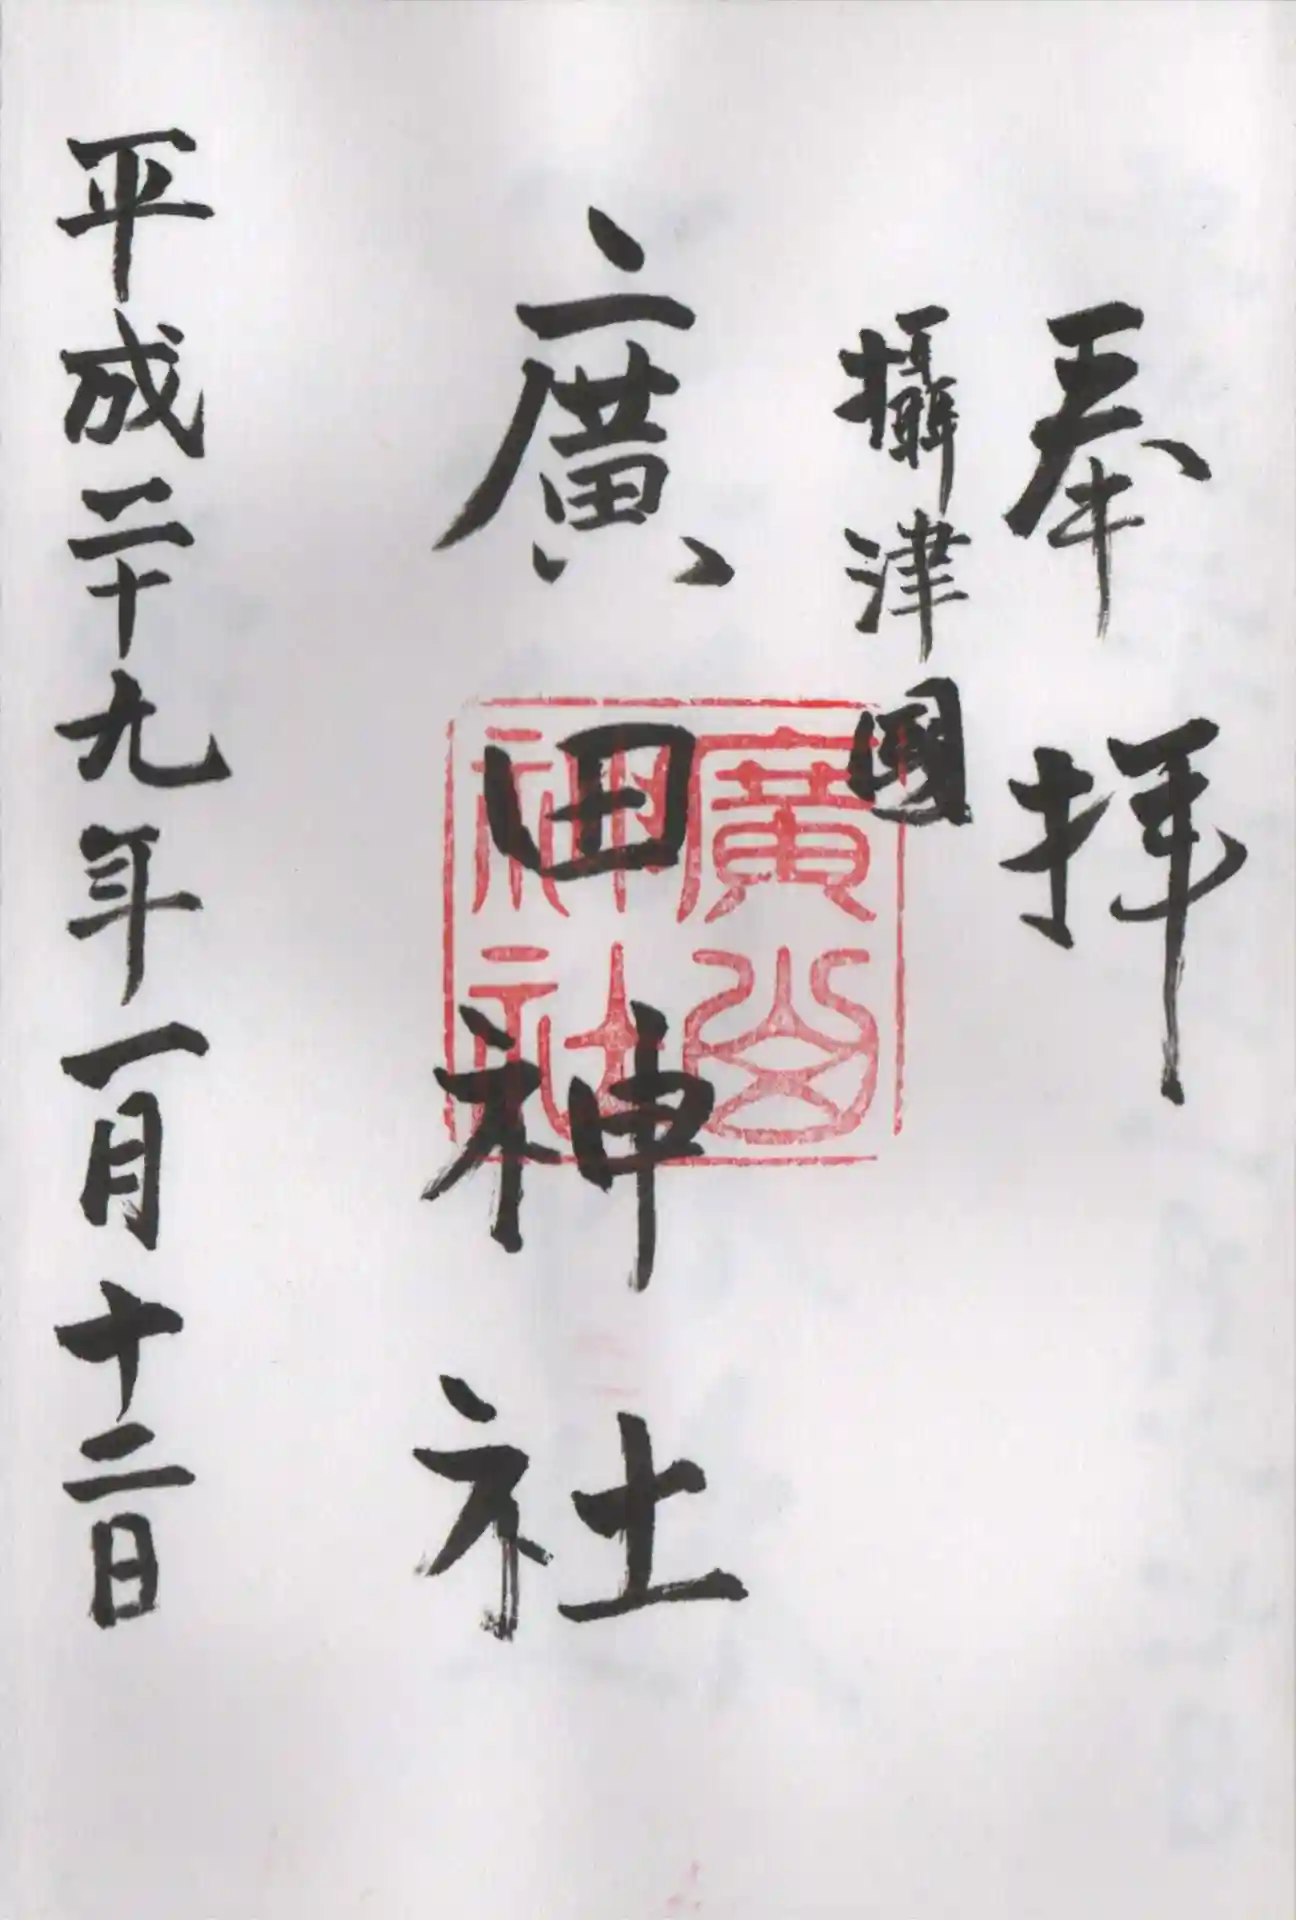 奉拝
攝津國
廣田神社
平成二十九年一月十二日